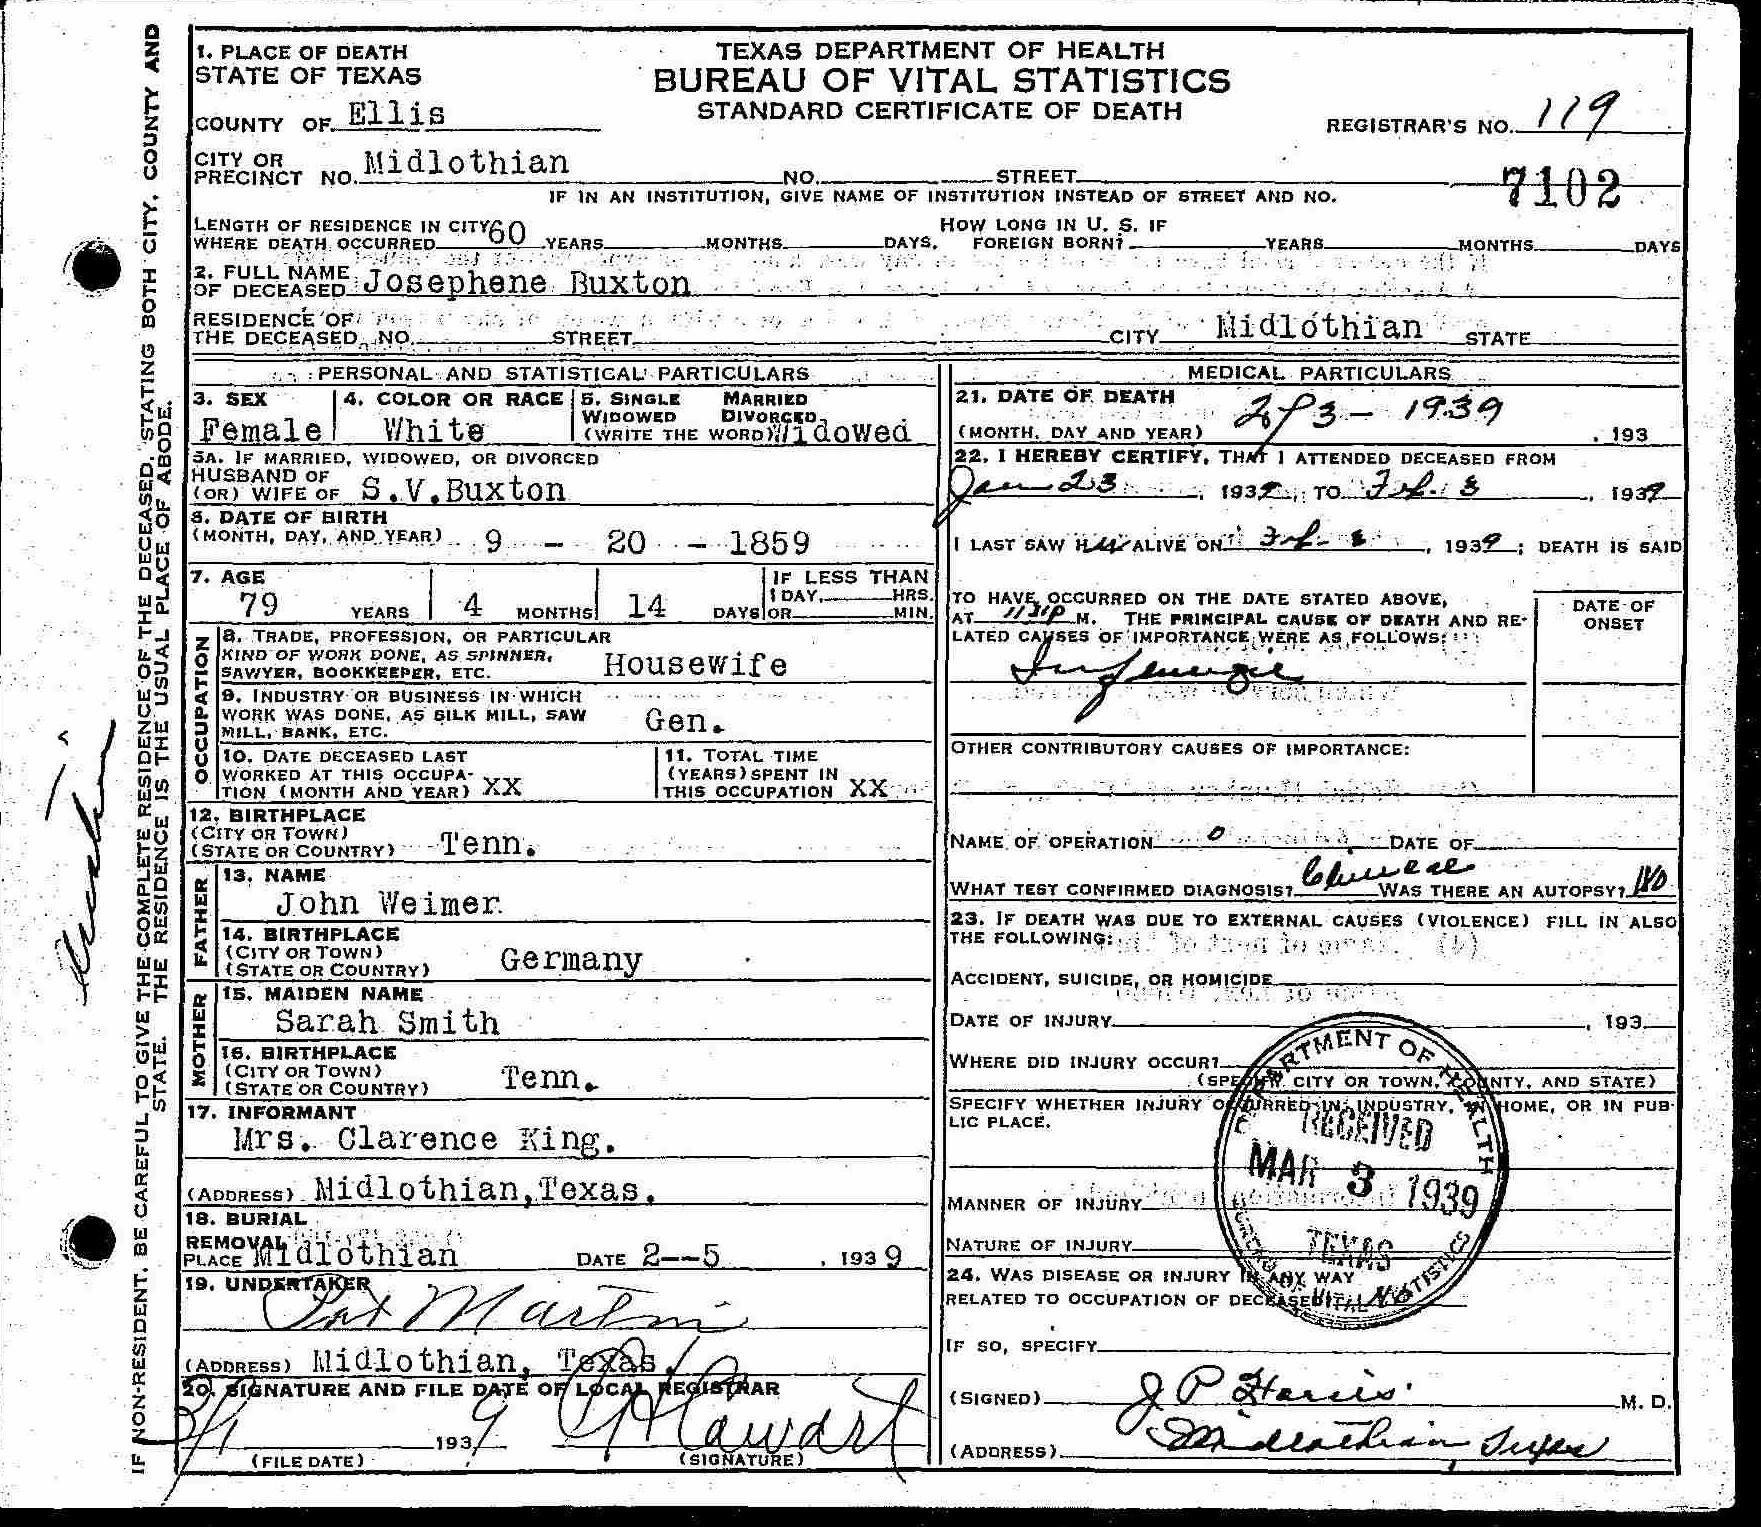 1. PLACE OF DEATH
STATE OF TEXAS
COUNTY OF Ellis
CITY OR
PRECINCT NO. Midlothian NO. STREET
TEXAS DEPARTMENT OF HEALTH
BUREAU OF VITAL STATISTICS
STANDARD CERTIFICATE OF DEATH
REGISTRAR'S NO. 119
7102
IF IN AN INSTITUTION, GIVE NAME OF INSTITUTION INSTEAD OF STREET AND NO.
LENGTH OF RESIDENCE IN CITY
WHERE DEATH OCCURRED 60 YEARS MONTHS DAYS.
HOW LONG IN U. S. IF
FOREIGN BORN? YEARS MONTHS DAYS
2. FULL NAME
OF DECEASED Josephene Buxton
RESIDENCE OF
THE DECEASED, NO. STREET CITY Midlothian STATE
PERSONAL AND STATISTICAL PARTICULARS
3. SEX
Female
4. COLOR OR RACE
White
5. SINGLE MARRIED
WIDOWED DIVORCED
(WRITE THE WORD) Widowed
5A. IF MARRIED, WIDOWED, OR DIVORCED
HUSBAND OF
(OR) WIFE OF S.V.Buxton
6. DATE OF BIRTH
(MONTH, DAY, AND YEAR) 9 - 20 - 1859
7. AGE
79 YEARS 4 MONTHS 14 DAYS
IF LESS THAN
1 DAY, HRS.
OR MIN.
OCCUPATION
8. TRADE, PROFESSION, OR PARTICULAR
KIND OF WORK DONE, AS SPINNER,
SAWYER, BOOKKEEPER, ETC. Housewife
9. INDUSTRY OR BUSINESS IN WHICH
WORK WAS DONE, AS SILK MILL, SAW
MILL, BANK, ETC. Gen.
10. DATE DECEASED LAST
WORKED AT THIS OCCUPA-
TION (MONTH AND YEAR) XX
11. TOTAL TIME
(YEARS) SPENT IN
THIS OCCUPATION XX
12. BIRTHPLACE
(CITY OR TOWN)
(STATE OR COUNTRY) Tenn.
FATHER
13. NAME
John Weimer
14. BIRTHPLACE
(CITY OR TOWN)
(STATE OR COUNTRY) Germany
MOTHER
15. MAIDEN NAME
Sarah Smith
16. BIRTHPLACE
(CITY OR TOWN)
(STATE OR COUNTRY) Tenn.
17. INFORMANT
Mrs. Clarence King.
(ADDRESS) Midlothian,Texas.
18. BURIAL
REMOVAL
PLACE Midlothian DATE 2--5 , 1939
19. UNDERTAKER
Pat Martin
(ADDRESS) Midlothian, Texas.
20. SIGNATURE AND FILE DATE OF LOCAL REGISTRAR
3/1 1939
(FILE DATE) (SIGNATURE)
MEDICAL PARTICULARS
21. DATE OF DEATH
(MONTH, DAY AND YEAR) 3 - 1939 , 193
22. I HEREBY CERTIFY, THAT I ATTENDED DECEASED FROM
Jan 23 , 1939, TO Feb. 3 , 1939
I LAST SAW HER ALIVE ON Feb - 3 , 1939; DEATH IS SAID
TO HAVE OCCURRED ON THE DATE STATED ABOVE,
AT M. THE PRINCIPAL CAUSE OF DEATH AND RE-
LATED CAUSES OF IMPORTANCE WERE AS FOLLOWS:
DATE OF
ONSET
Influenza
OTHER CONTRIBUTORY CAUSES OF IMPORTANCE:
NAME OF OPERATION 0 DATE OF
WHAT TEST CONFIRMED DIAGNOSIS? Clinical WAS THERE AN AUTOPSY? No
23. IF DEATH WAS DUE TO EXTERNAL CAUSES (VIOLENCE) FILL IN ALSO
THE FOLLOWING:
ACCIDENT, SUICIDE, OR HOMICIDE
DATE OF INJURY , 193
WHERE DID INJURY OCCUR?
(SPECIFY CITY OR TOWN, COUNTY, AND STATE)
SPECIFY WHETHER INJURY OCCURRED IN INDUSTRY, IN HOME, OR IN PUB-
LIC PLACE.
MANNER OF INJURY
NATURE OF INJURY
24. WAS DISEASE OR INJURY IN ANY WAY
RELATED TO OCCUPATION OF DECEASED? No
IF SO, SPECIFY
(SIGNED) J P Harris M. D.
(ADDRESS) Midlothian, Texas
DEPARTMENT OF HEALTH
RECEIVED
MAR 3 1939
TEXAS
BUREAU OF VITAL STATISTICS
IF NON-RESIDENT, BE CAREFUL TO GIVE THE COMPLETE RESIDENCE OF THE DECEASED, STATING BOTH CITY, COUNTY AND
STATE. THE RESIDENCE IS THE USUAL PLACE OF ABODE.